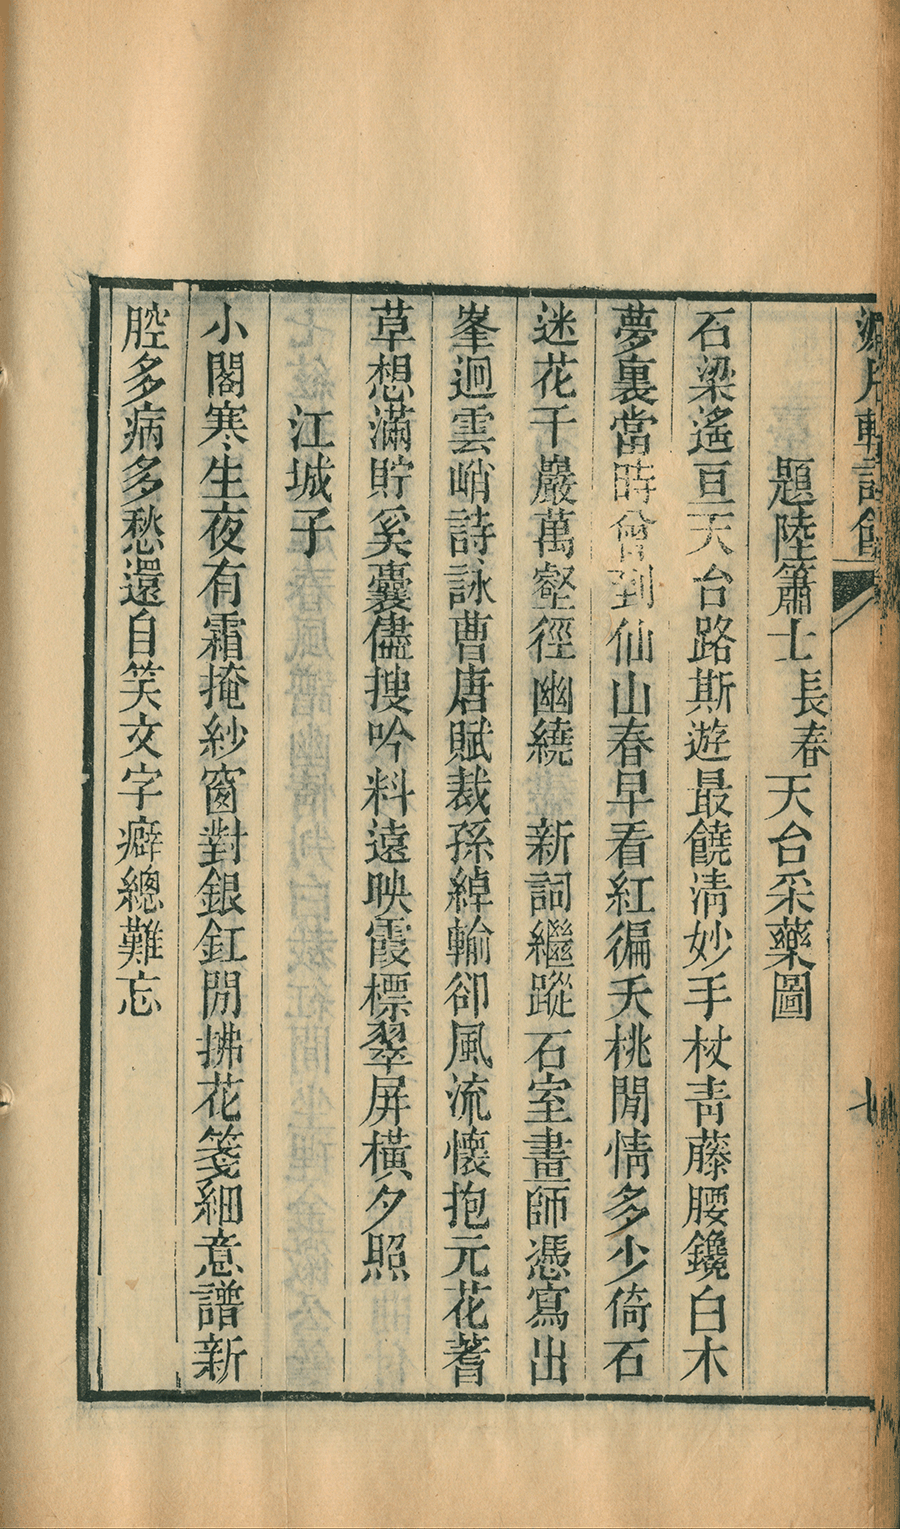 題陸簫士長春天台采藥圖
石梁遙亘天台路斯遊最饒清妙手杖青藤腰鑱白木
夢裏當時曾到仙山春早看紅徧夭桃閒情多少倚石
迷花千巖萬壑徑幽繞　新詞繼蹤石室畫師憑寫出
峯迴雲峭詩詠曹唐賦裁孫綽輸卻風流懷抱元花蓍
草想滿貯奚囊儘搜吟料遠映霞標翠屏橫夕照
江城子
小閣寒生夜有霜掩紗窗對銀釭閒拂花箋細意譜新
腔多病多愁還自笑文字癖總難忘